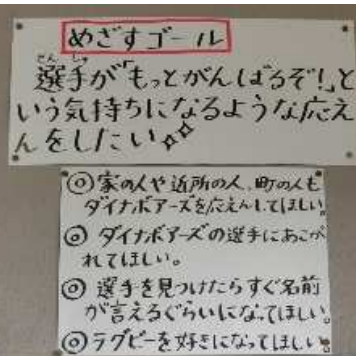 めざすゴール
せんしゅ
選手が「もっとがんばるぞ!」と
いう気持ちになるような応え
んをしたい
◎ 家の人や近所の人、町の人も
ダイナボアーズを応えんしてほしい。
◎ ダイナボアーズの選手にあこが
れてほしい。
◎ 選手を見つけたらすぐ名前
が言えるぐらいになってほしい。
◎ ラグビーを好きになってほしい。